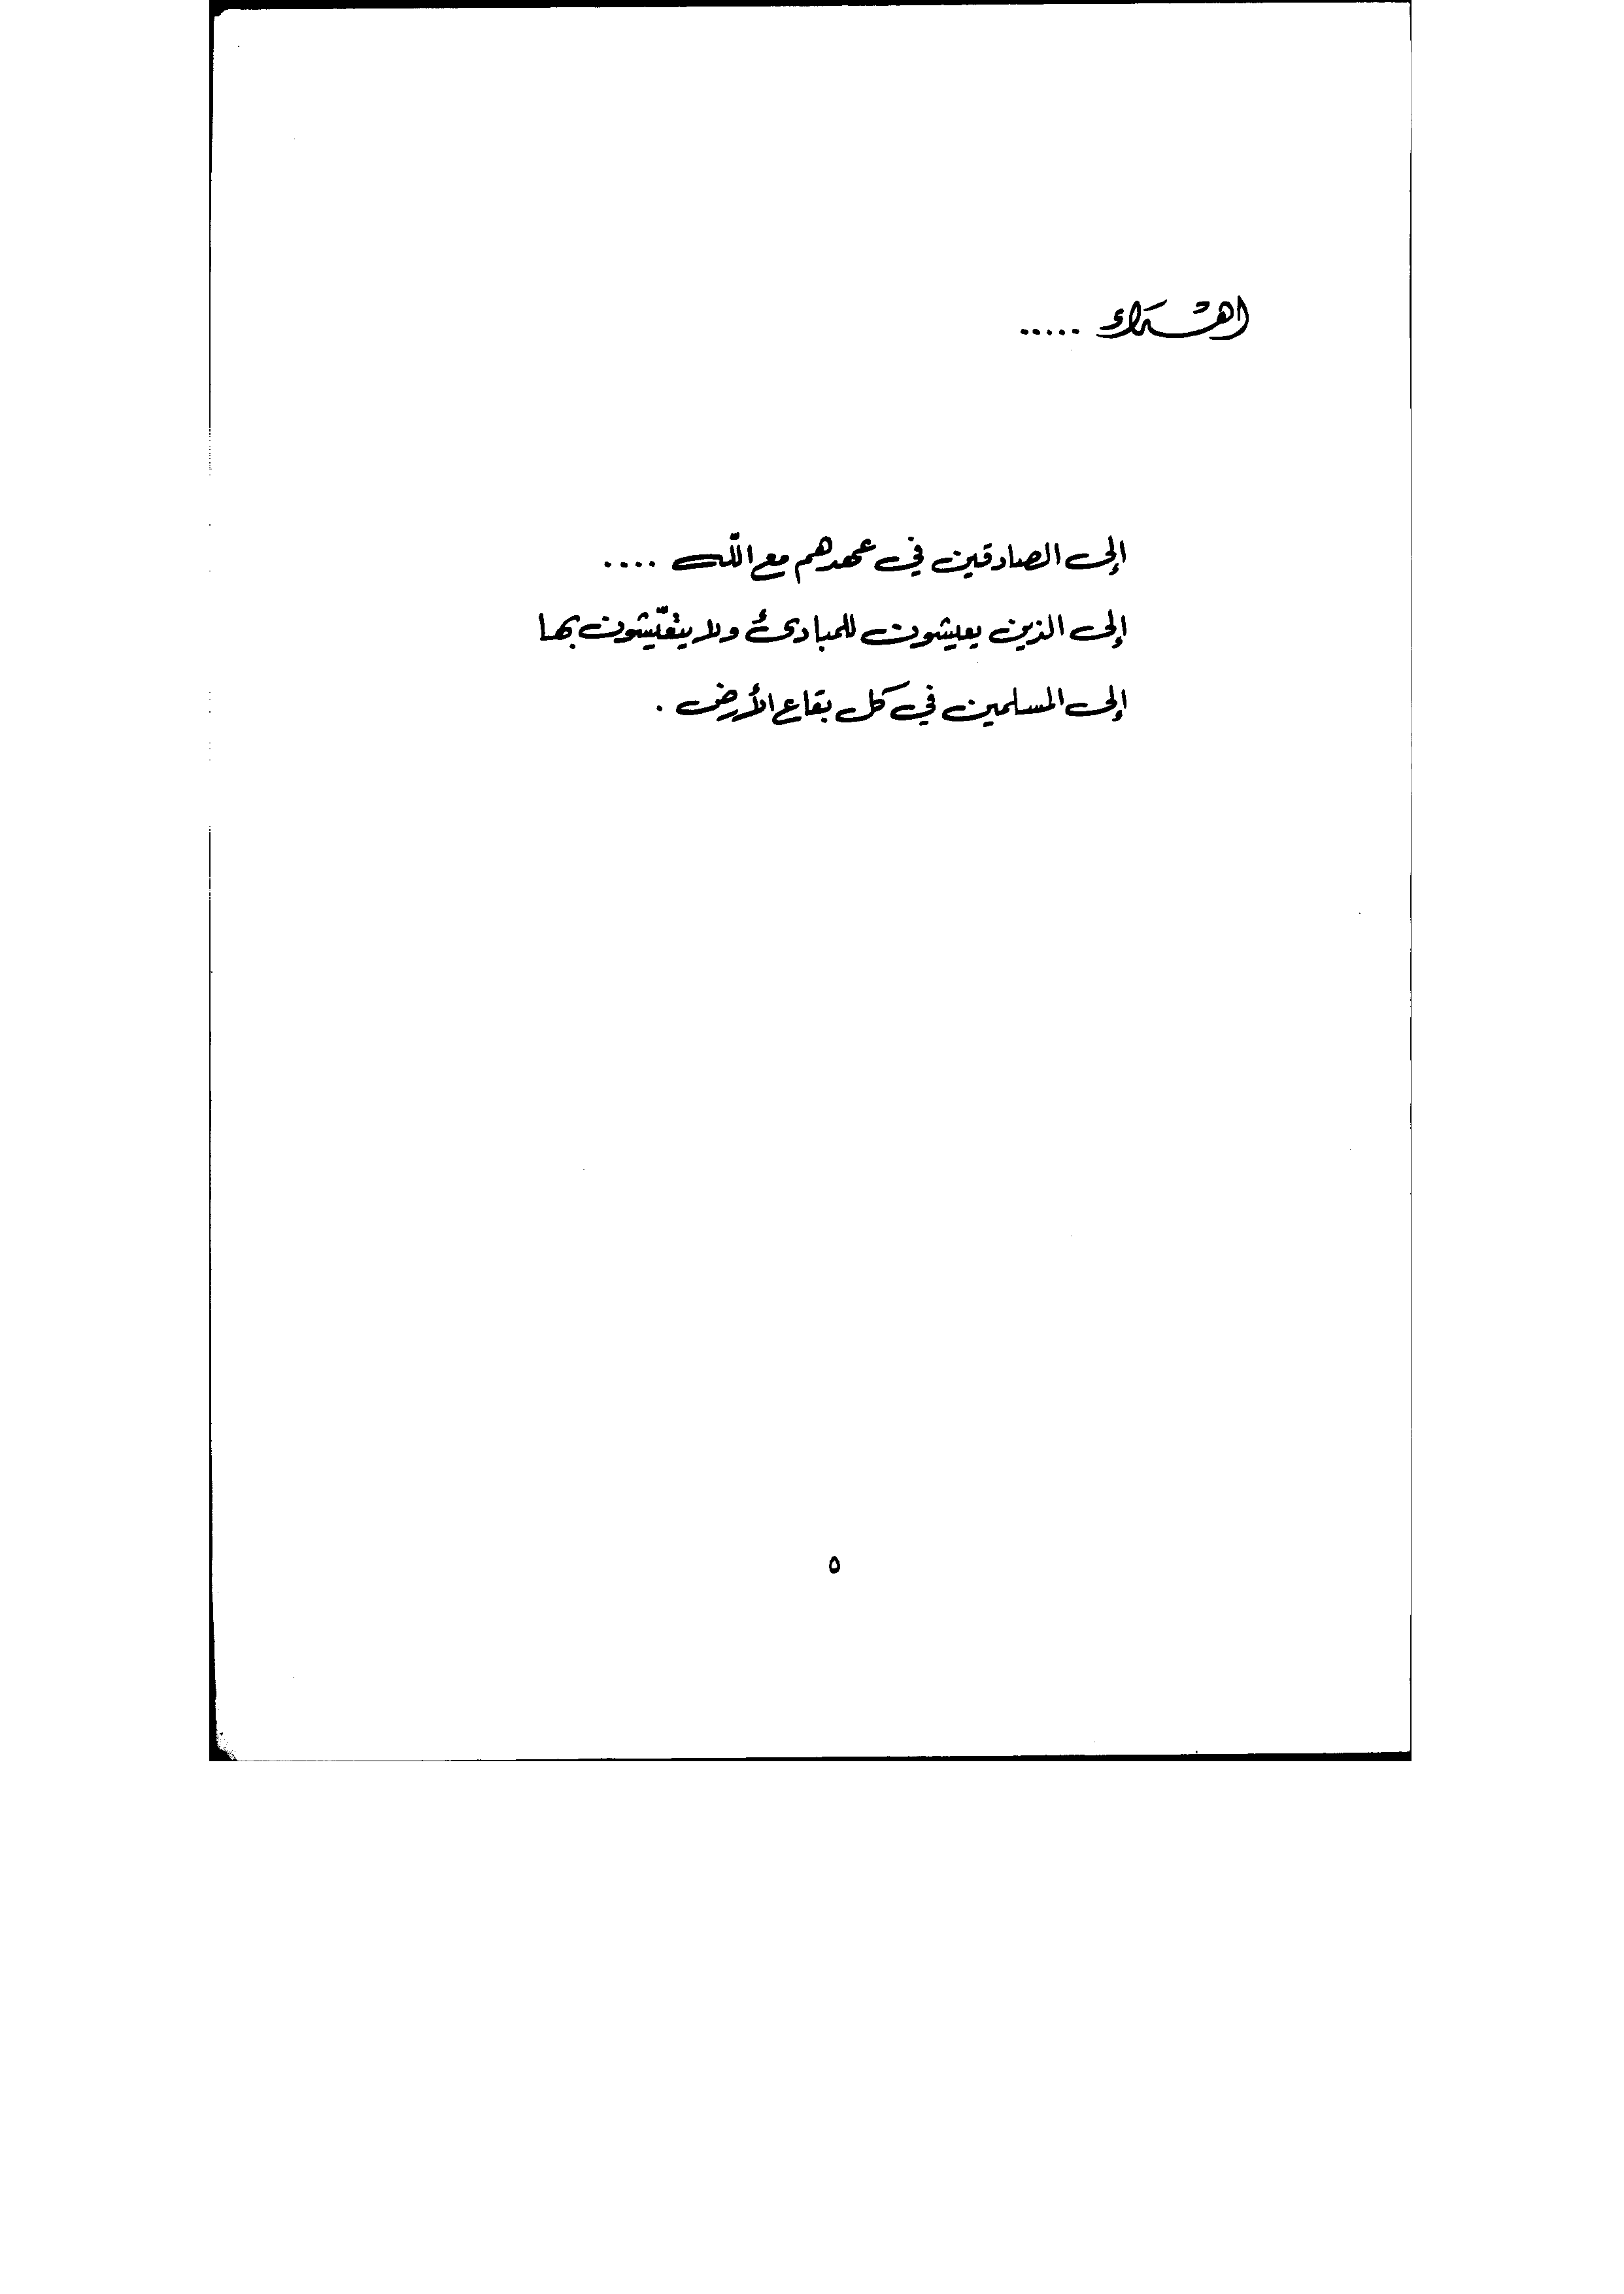 اهداء .....
إلى الصادقين في عهدهم مع اللّه ....
إلى الذين يعيشون للمبادئ ولا يتعيّشون بها
إلى المسلمين في كل بقاع الأرض .
٥